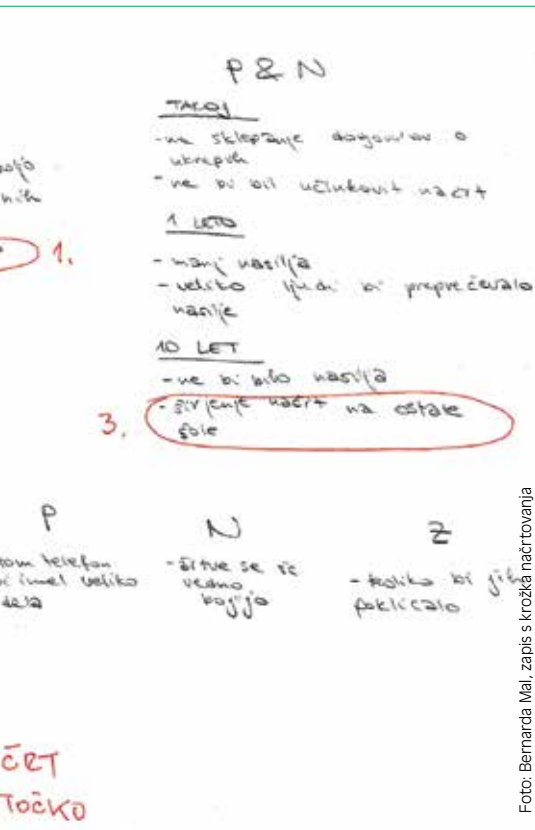 P & N
TAKOJ
- ne sklepanje dogovorov o
ukrepih
- ne bi bil učinkovit načrt
1 LETO
1.
- manj nasilja
- veliko ljudi bi preprečevalo
nasilje
10 LET
- ne bi bilo nasilja
- širjenje načrt na ostale
šole
3.
P
N
Z
tom telefon
bi imel veliko
dela
- žrtve se še
vedno
bojijo
- koliko bi jih
poklicalo
ČRT
TOČKO
Foto: Bernarda Mal, zapis s krožka načrtovanja